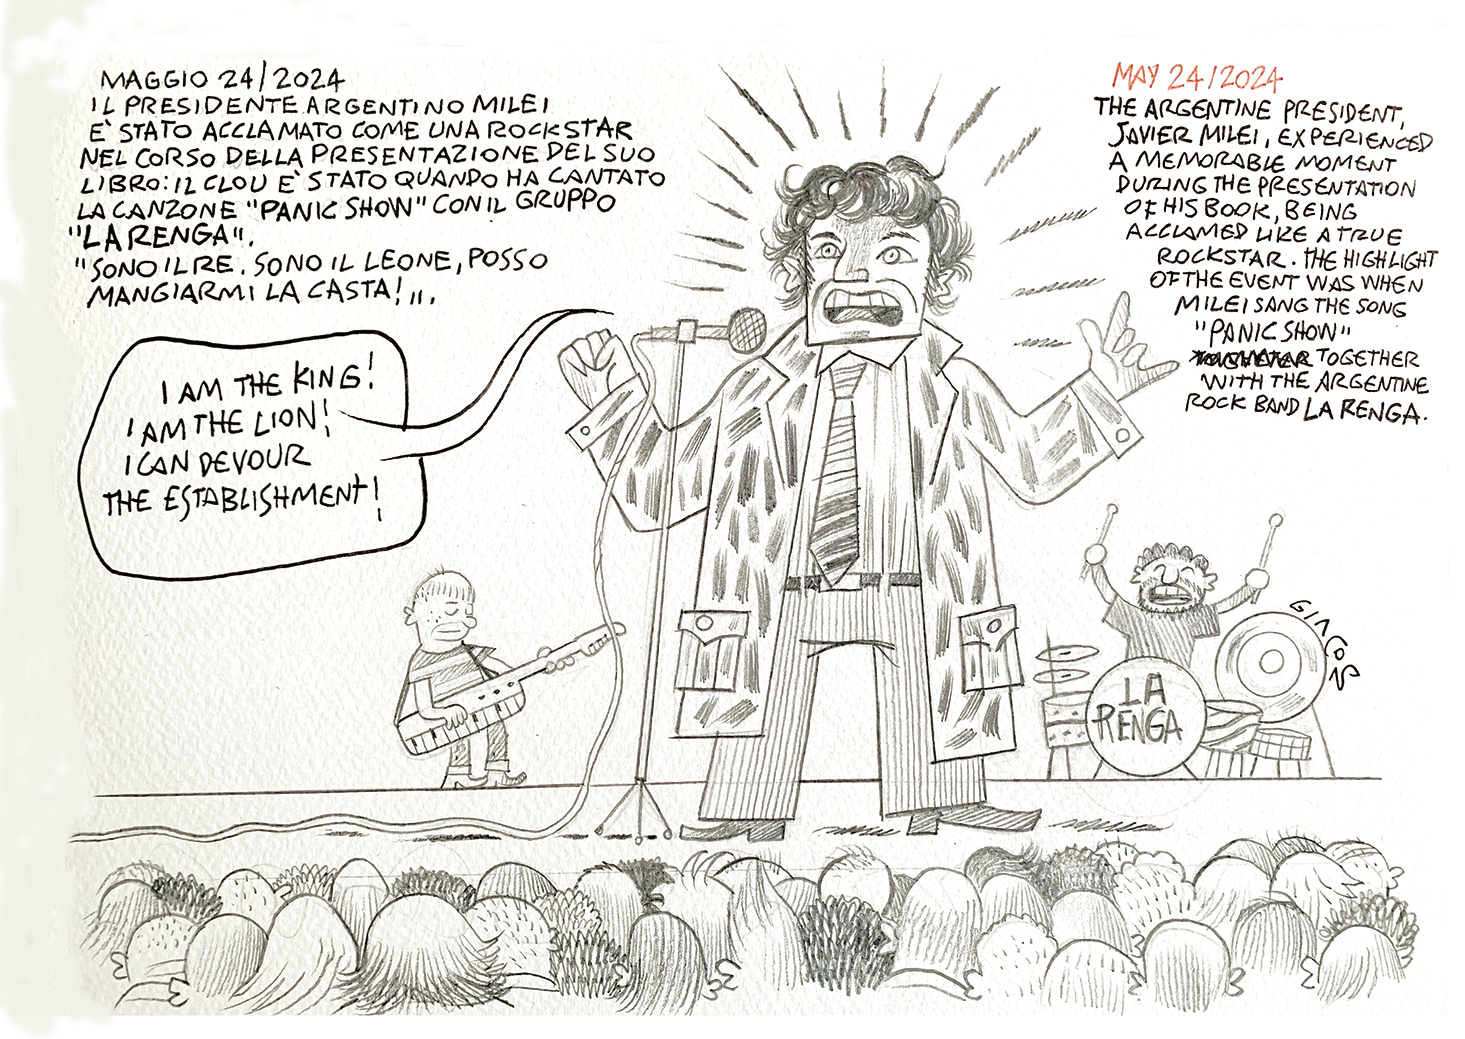 MAGGIO 24/2024
IL PRESIDENTE ARGENTINO MILEI
E' STATO ACCLAMATO COME UNA ROCKSTAR
NEL CORSO DELLA PRESENTAZIONE DEL SUO
LIBRO: IL CLOU E' STATO QUANDO HA CANTATO
LA CANZONE "PANIC SHOW" CON IL GRUPPO
"LA RENGA".
"SONO IL RE. SONO IL LEONE, POSSO
MANGIARMI LA CASTA!"...
I AM THE KING!
I AM THE LION!
I CAN DEVOUR
THE ESTABLISHMENT!
MAY 24/2024
THE ARGENTINE PRESIDENT,
JAVIER MILEI, EXPERIENCED
A MEMORABLE MOMENT
DURING THE PRESENTATION
OF HIS BOOK, BEING
ACCLAMED LIKE A TRUE
ROCKSTAR. THE HIGHLIGHT
OF THE EVENT WAS WHEN
MILEI SANG THE SONG
"PANIC SHOW"
TOGETHER
WITH THE ARGENTINE
ROCK BAND LA RENGA.
LA
RENGA